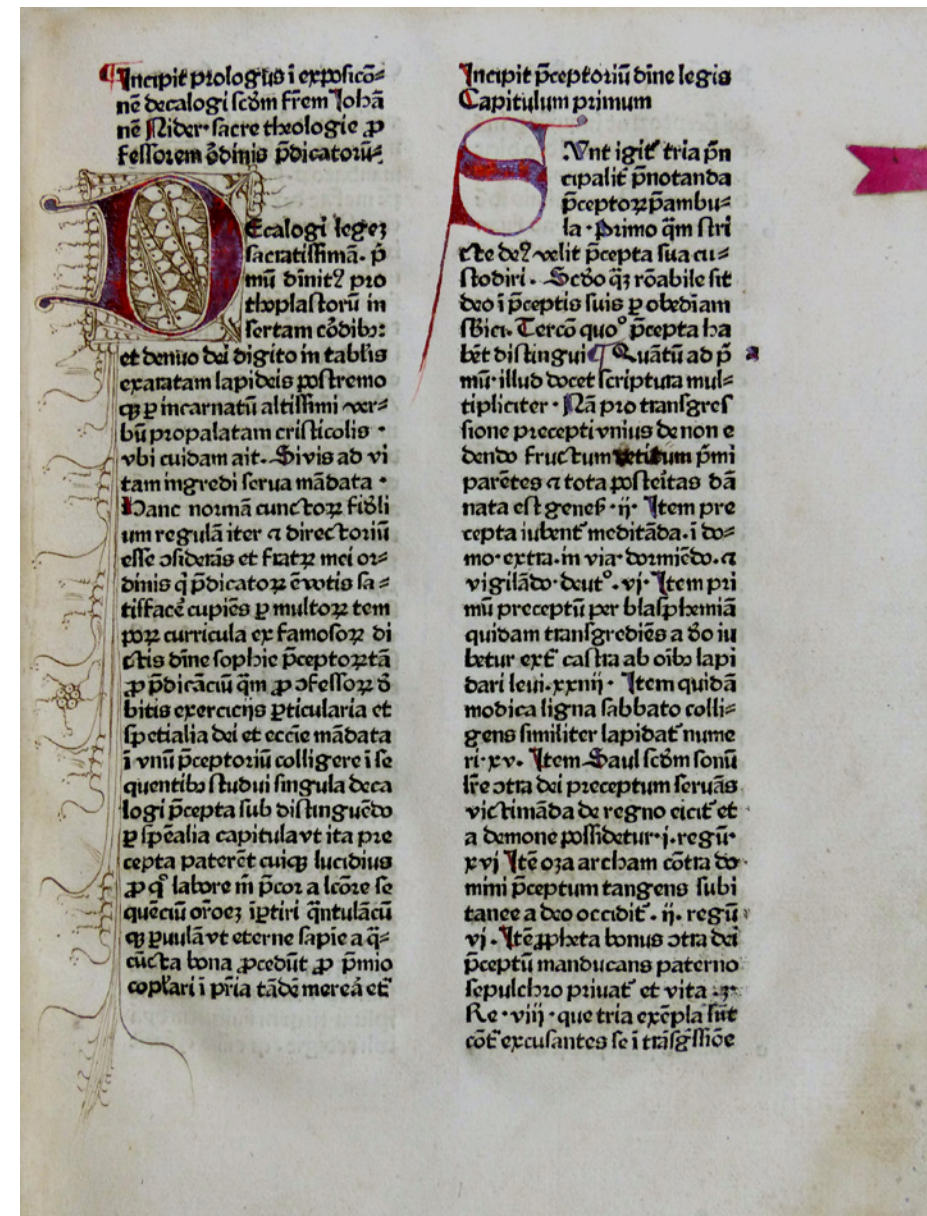 Incipit prologus ī exposicō=
nē decalogi scd̄m fr̄em Johā
nē Nider· sacre theologie ꝓ
fessorem ōdinis p̄dicatorū·
DEcalogi legeꝫ
sacratissimā· p̄
mū dīnitꝰ pro
thoplastorū in
sertam cōdibꝫ:
et denuo dei digito in tabl̄is
exaratam lapideis postremo
qꝫ ꝑ incarnatū altissimi ver=
bū propalatam cristicolis ·
vbi cuidam ait. Si vis ad vi
tam ingredi serua mādata ·
Hanc normā cunctoꝝ fid̄li
um regulā iter ⁊ directoriū
esse ꝯsiderās et fratꝝ mei or=
dinis q̄ p̄dicatoꝝ ē votis sa=
tisfacē cupiēs ꝑ multoꝝ tem
poꝝ curricula ex famosoꝝ di
ctis dīne sophie p̄ceptoꝝ tā
ꝓ p̄dicāciū q̄m ꝓ ꝯfessoꝝ d̄
bitis exercicijs ꝑticularia et
spetialia dei et eccīe mādata
ī vnū p̄ceptoriū colligere ī se
quentibꝫ studui singula deca
logi p̄cepta sub distinguēdo
ꝑ sp̄ealia capitula vt ita pre
cepta paterēt cuiqꝫ lucidius
ꝓ qͦ labore m̄ p̄cor a lcōre se
quēciū or̄oeꝫ īꝑtiri q̄ntulācū
qꝫ ꝑuulā vt eterne sapīe a q̄=
cūcta bona ꝓcedūt ꝓ p̄mio
copl̄ari ī pr̄ia tādē mereā et̄
Incipit p̄ceptoriū dīne legis
Capitulum primum
SVnt igit̄ tria p̄n
cipalit̄ p̄notanda
p̄ceptoꝝ p̄ambu=
la · Primo q̄m stri
cte deꝰ velit p̄cepta sua cu=
stodiri . Scd̄o qꝫ rōabile sit
deo ī p̄ceptis suis ꝑ obediam
sb̄ici. Tercō quoͦ p̄cepta ha
bēt distingui ¶ Quātū ad p̄ a
mū· illud docet scriptura mul=
tipliciter · Nā pro transgres
sione precepti vnius de non e
dendo fructum vetitum p̄mi
parētes ⁊ tota posteitas dā
nata est genes̄ ·ij· Item pre
cepta iubent̄ meditāda· ī do=
mo· extra· in via· dormiēdo· ⁊
vigilādo· deutͦ. vj· Item pri
mū preceptū per blasphemiā
quidam transgrediēs a d̄o iu
betur ext̄ castra ab oībꝫ lapi
dari leui. xxiiij · Item quidā
modica ligna sabbato colli=
gens similiter lapidat̄ nume
ri· xv. Item Saul scd̄m sonū
lr̄e ꝯtra dei preceptum seruās
victimāda de regno eicit̄ et
a demone possidetur· j. regū·
xvj Itē oza archam cōtra do
mini p̄ceptum tangens subi
tanee a deo occidit̄ . ij. regū
vj . Itē ꝓpheta bonus ꝯtra dei
p̄ceptū manducans paterno
sepulchro priuat̄ et vita ·3·
Re· viij · que tria exēpla sūt
cōt̄ excusantes se ī trāsḡssiōe